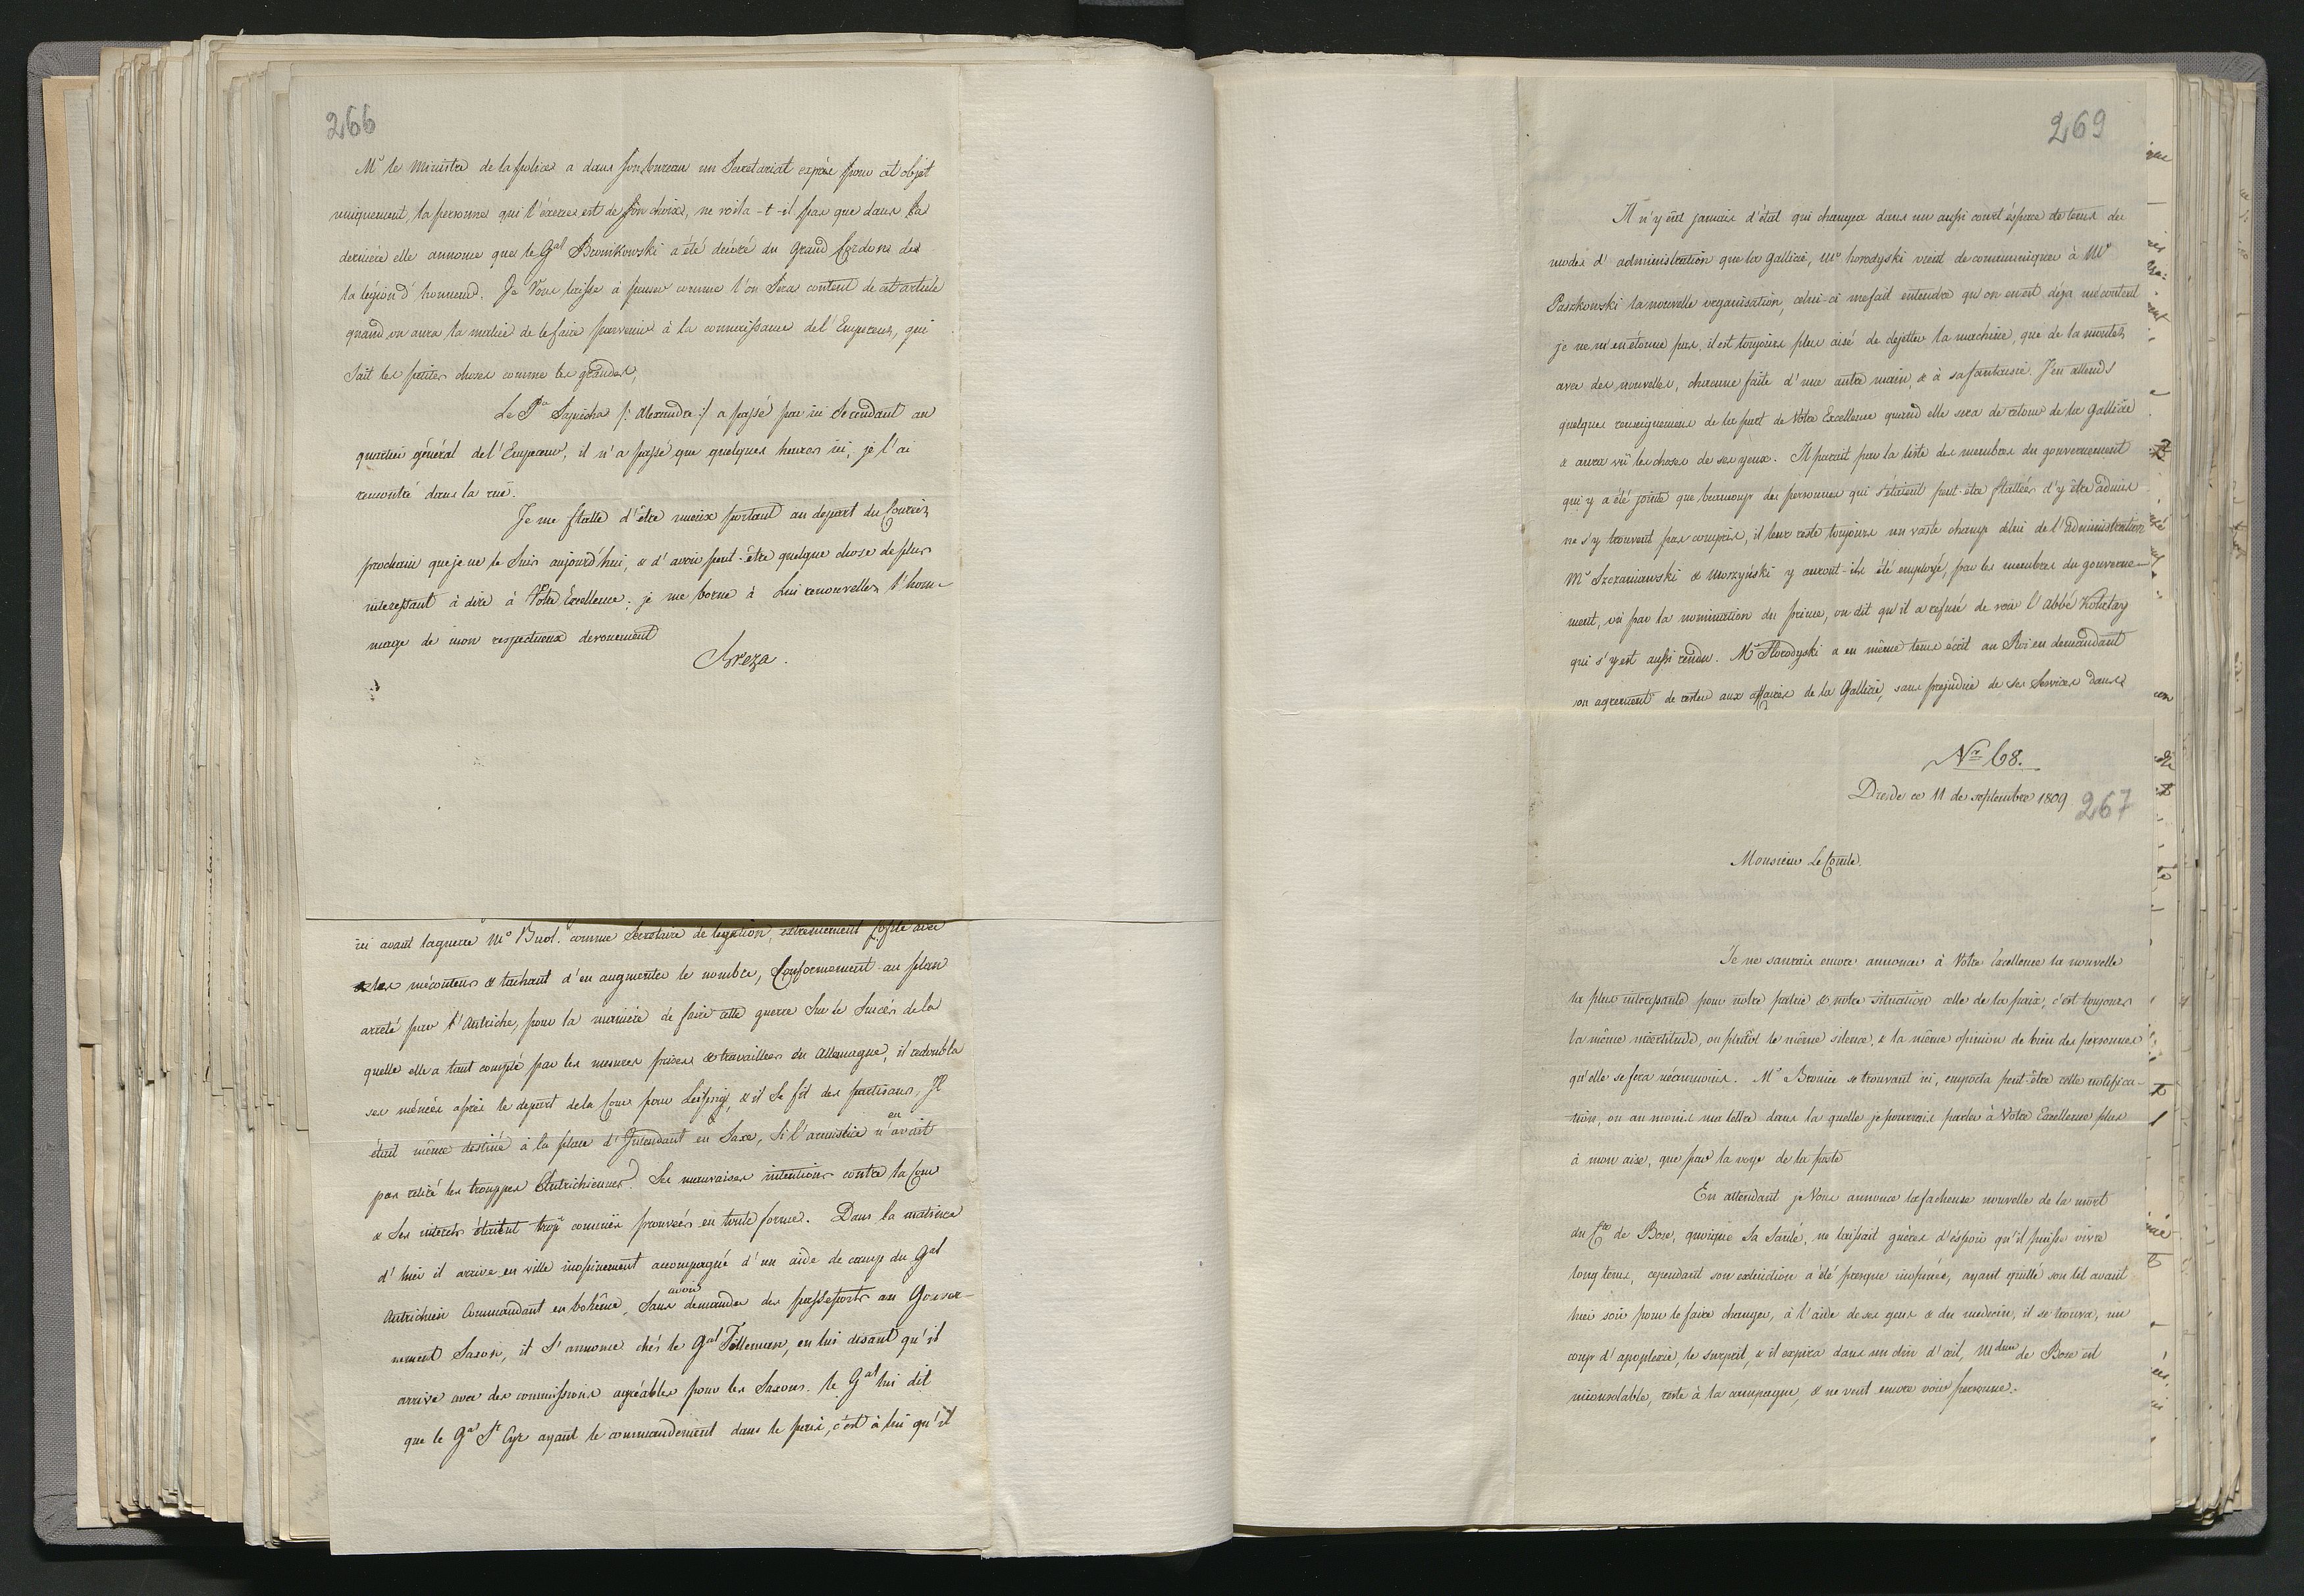 266
Mr le Ministre de la police a dans son bureau un Secretariat exprès pour cet objet
uniquement, la personne qui l'éxerce est de son choix, ne voila-t-il pas que dans la
derniére elle annonce que le Gal Bronikowski a été decoré du Grand Cordon de
la légion d'honneur. Je Vous laisse à penser comme l'on Sera content de cet article
quand on aura la malice de le faire parvenir à la connaissance de l'Empereur, qui
Sait les petites choses comme les grandes,
Le Pce Sapieha /: Alexandre :/ a passé par ici Se rendant au
quartier général de l'Empereur, il n'a passé que quelques heures ici, je l'ai
rencontré dans la ruë.
Je me flatte d'être mieux portant au depart du Courier
prochain que je ne le Suis aujourd'hui, & d'avoir peut-être quelque chose de plus
interessant à dire à Votre Excellence; je me borne à Lui renouveller l'hom-
mage de mon respectueux devouement
Breza.
ici avant la guerre Mr Buol. comme Secretaire de legation, extremement faufilé avec
les mécontens & tachant d'en augmenter le nombre, Conformement au plan
arreté par l'Autriche, pour la maniere de faire cette guerre Sur le Succès de la
quelle elle a tant compté par les mesures prises & travaillées en Allemagne, il redoubla
ses menées après le depart de la Cour pour Leipsig, & il Se fit des partisans, Il
était même destiné à la place d'Intendant en Saxe, Si l'armistice n'avait
en
pas retiré les trouppes Autrichiennes. Ses mauvaises intentions contre la Cour
& Ses interets étaient trop connües prouvées en toute forme. Dans la matinée
d'hier il arrive en ville inopinement accompagné d'un aide de camp du Gal
Autrichien Commandant en bohême, Sans demander des passeports au Gouver-
avoir
nement Saxon, il S'annonce chés le Gal Tilleman, en lui disant qu'il
arrive avec des commissions agréables pour les Saxons. le Gal lui dit
que le Gal St Cyr ayant le commandement dans le pais, c'est à lui qu'il
269
Il n'y eut jamais d'état qui changea dans un aussi court éspace de tems de
modes d'administration que la Gallicie, Mr horodyski vient de communiquer à Mr
Paszkowski la nouvelle organisation, celui-ci me fait entendre qu'on en est déja mécontent
je ne m'en étonne pas, il est toujours plus aisé de dejetter la machine, que de la monter
avec des nouvelles, chacune faite d'une autre main, & à sa fantaisie. J'en attends
quelques renseignemens de la part de Votre Excellence quand elle sera de retour de la Gallicie
& aura vü les choses de ses yeux. Il parait par la liste des membres du gouvernement
qui y a été jointe que beaucoup des personnes qui s'étaient peut-être flattées d'y être admis
ne s'y trouvent pas compris, il leur reste toujours un vaste champ celui de l'administration
Mr Szczaniawski & Morzyński y auront-ils été employé, par les membres du gouverne-
ment, où par la nomination du prince, on dit qu'il a refusé de voir l'abbé Kołłątay
qui s'y est aussi rendu. Mr Horodyski a en même tems écrit au Roi en demandant
son agrement de rester aux affaires de la Gallicie, sans prejudice de ses Services dans
Nr 68.
Dresde ce 11 de septembre 1809
267
Monsieur Le Comte.
Je ne saurais encore annoncer à Votre Excellence la nouvelle
la plus interessante pour notre patrie & notre situation celle de la paix, c'est toujours
la même incertitude, ou plutôt le même silence, & la même opinion de bien des personnes
qu'elle se fera néanmoins. Mr Bronice se trouvant ici, emporta peut-être cette notifica-
tion, ou au moins ma lettre dans la quelle je pourrais parler à Votre Excellence plus
à mon aise, que par la voye de la poste
En attendant je Vous annonce la facheuse nouvelle de la mort
du Cte de Bose, quoique Sa Santé, ne laissait guères d'éspoir qu'il puisse vivre
long tems, cependant son extinction a été presque inopinée, ayant quitté son lit avant
hier soir pour le faire changer, à l'aide de ses gens & du medecin, il se trouva, un
coup d'apoplexie, le surprit, & il expira dans un clin d'œil, Mdme de Bose est
inconsolable, reste à la campagne, & ne veut encore voir personne.